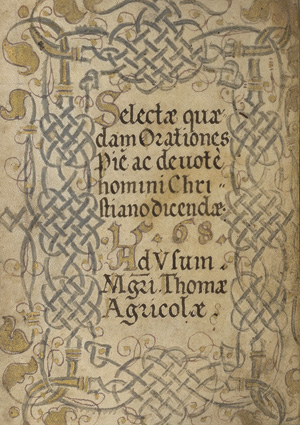 Selectæ quæ
dam Orationes
Pie ac devote
homini Chri⸗
stiano dicendæ.
1568.
Ad Vsum.
Mgri Thomæ
Agricolæ.